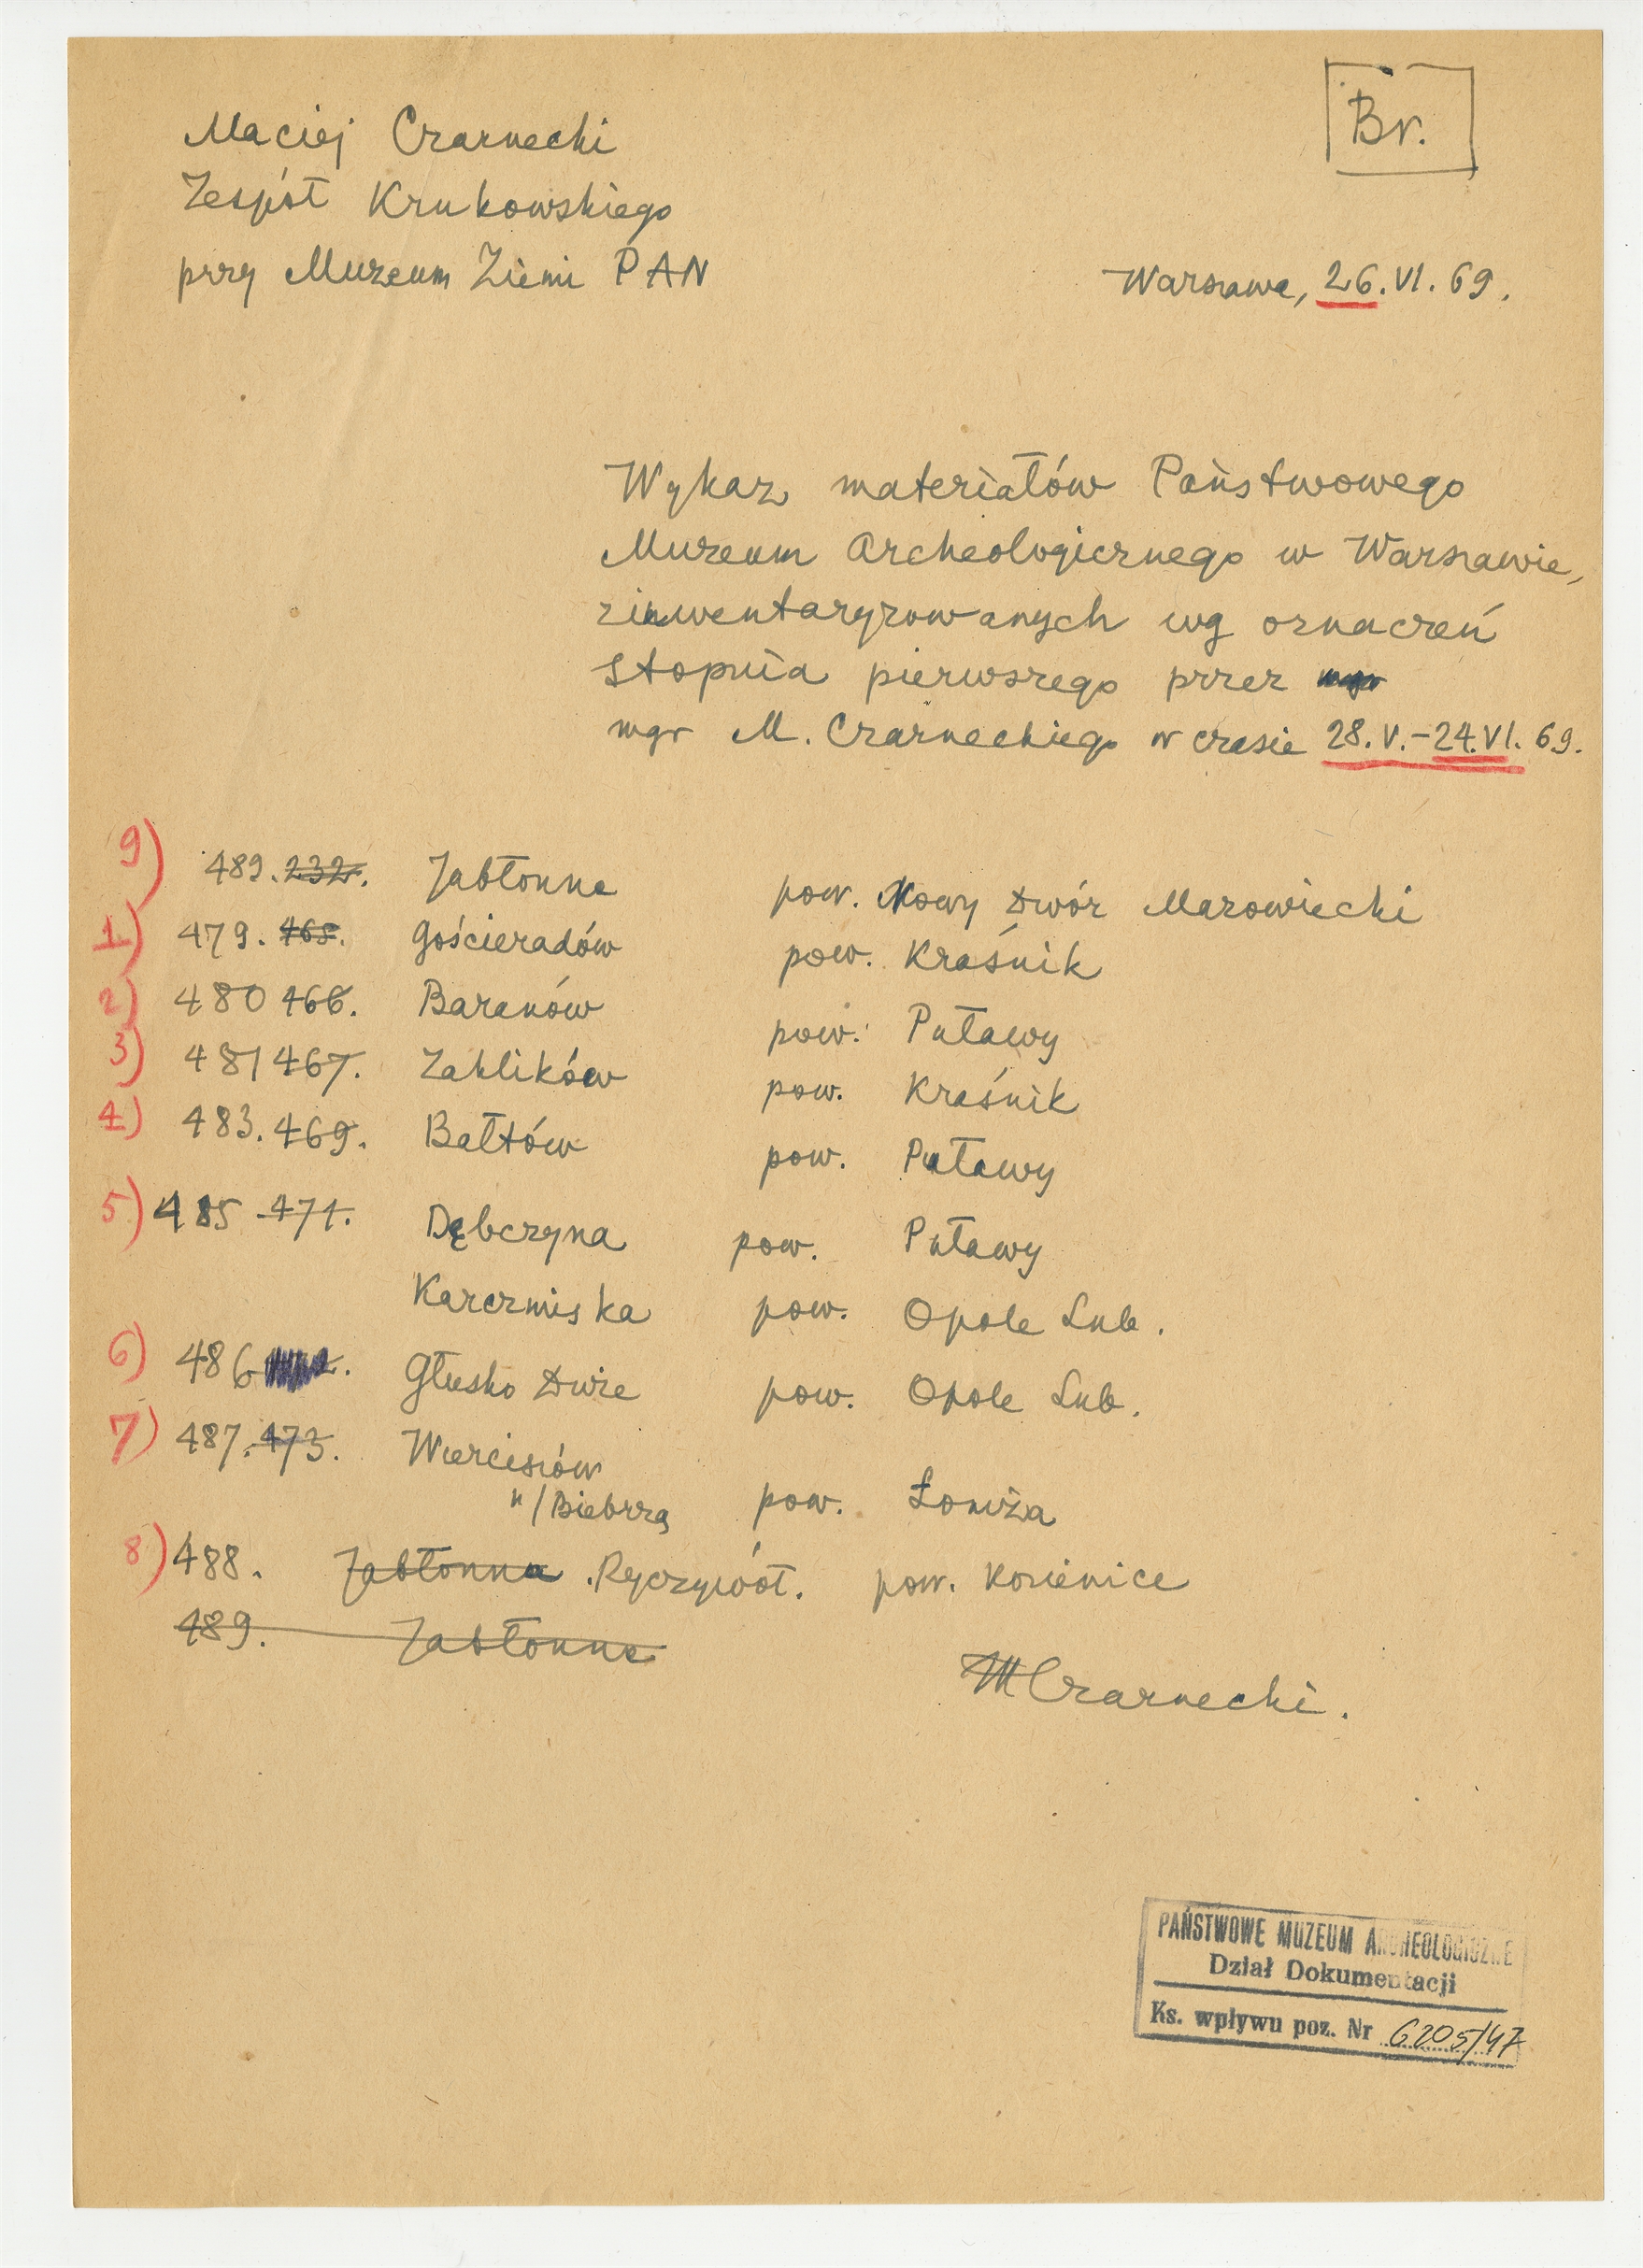 Br.
Maciej Czarnecki
Zespół Krukowskiego
przy Muzeum Ziemi PAN
Warszawa, 26.VI.69.
Wykaz materiałów Państwowego
Muzeum Archeologicznego w Warszawie,
zinwentaryzowanych wg oznaczeń
stopnia pierwszego przez
mgr M. Czarneckiego w czasie 28.V.–24.VI.69.
9) 489. 232. Jabłonna pow. Nowy Dwór Mazowiecki
1) 479. 465. Gościeradów pow. Kraśnik
2) 480 466. Baranów pow. Puławy
3) 481 467. Zaklików pow. Kraśnik
4) 483. 469. Bałtów pow. Puławy
5) 485 471. Dębczyna pow. Puławy
Karczmiska pow. Opole Lub.
6) 486 Głusko Duże pow. Opole Lub.
7) 487. 473. Wierciszów
n/Biebrzą pow. Łomża
8) 488. Jabłonna . Ryczywół. pow. Kozienice
489. Jabłonna
MCzarnecki.
PAŃSTWOWE MUZEUM ARCHEOLOGICZNE
Dział Dokumentacji
Ks. wpływu poz. Nr 6205/47